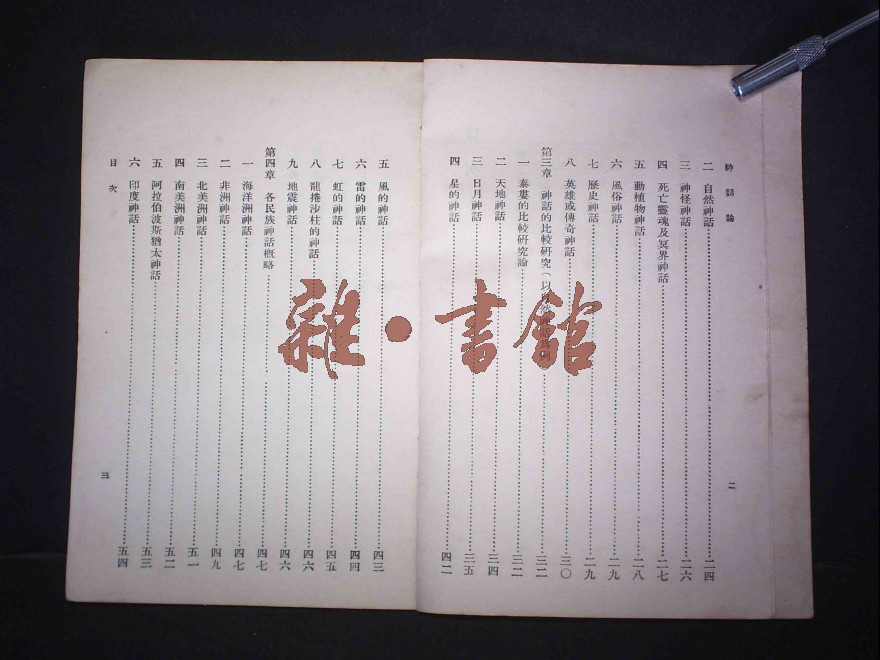 神話論
二 自然神話 二四
三 神怪神話 二六
四 死亡靈魂及冥界神話 二七
五 動植物神話 二八
六 風俗神話 二九
七 歷史神話 二九
八 英雄或傳奇神話 三〇
第三章 神話的比較研究(以 三二
一 泰婁的比較研究論 三二
二 天地神話 三四
三 日月神話 三五
四 星的神話 四二
二
五 風的神話 四三
六 雷的神話 四四
七 虹的神話 四五
八 龍捲沙柱的神話 四六
九 地震神話 四六
第四章 各民族神話概略 四七
一 海洋洲神話 四七
二 非洲神話 四九
三 北美洲神話 五一
四 南美洲神話 五二
五 阿拉伯波斯猶太神話 五三
六 印度神話 五四
目次
三
雜·書館